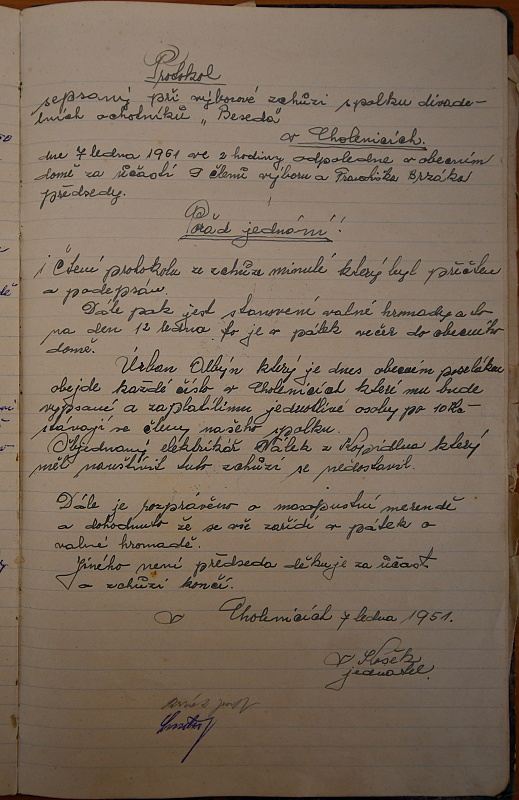 Protokol
sepsaný při výborové schůzi spolku divade-
lních ochotníků „Beseda"
v Cholenicích.
dne 7 ledna 1951 ve 2 hodiny odpoledne v obecním
domě za účasti 9 členů výboru a Františka Brzáka
předsedy.
Pořad jednání!
1 Čtení protokolu ze schůze minulé který byl přečten
a podepsán.
Dále pak jest stanovení valné hromady a to
na den 12 ledna to je v pátek večer do obecního
domě.
Urban Albín který je dnes obecním poslem
obejde každé číslo v Cholenicích které mu bude
vypsané a zaplatilimu jednotlivé osoby po 10 Kčs
stávají se členy našeho spolku.
Objednaný elektrikář Pálek z Kopidlna který
měl navštívit tuto schůzi se nedostavil.
Dále je rozprávěno o masopustní merendě
a dohodnuto že se vše zařídí v pátek o
valné hromadě.
Jiného není předseda děkuje za účast
a schůzi končí.
V Cholenicích 7 ledna 1951.
jednatel.